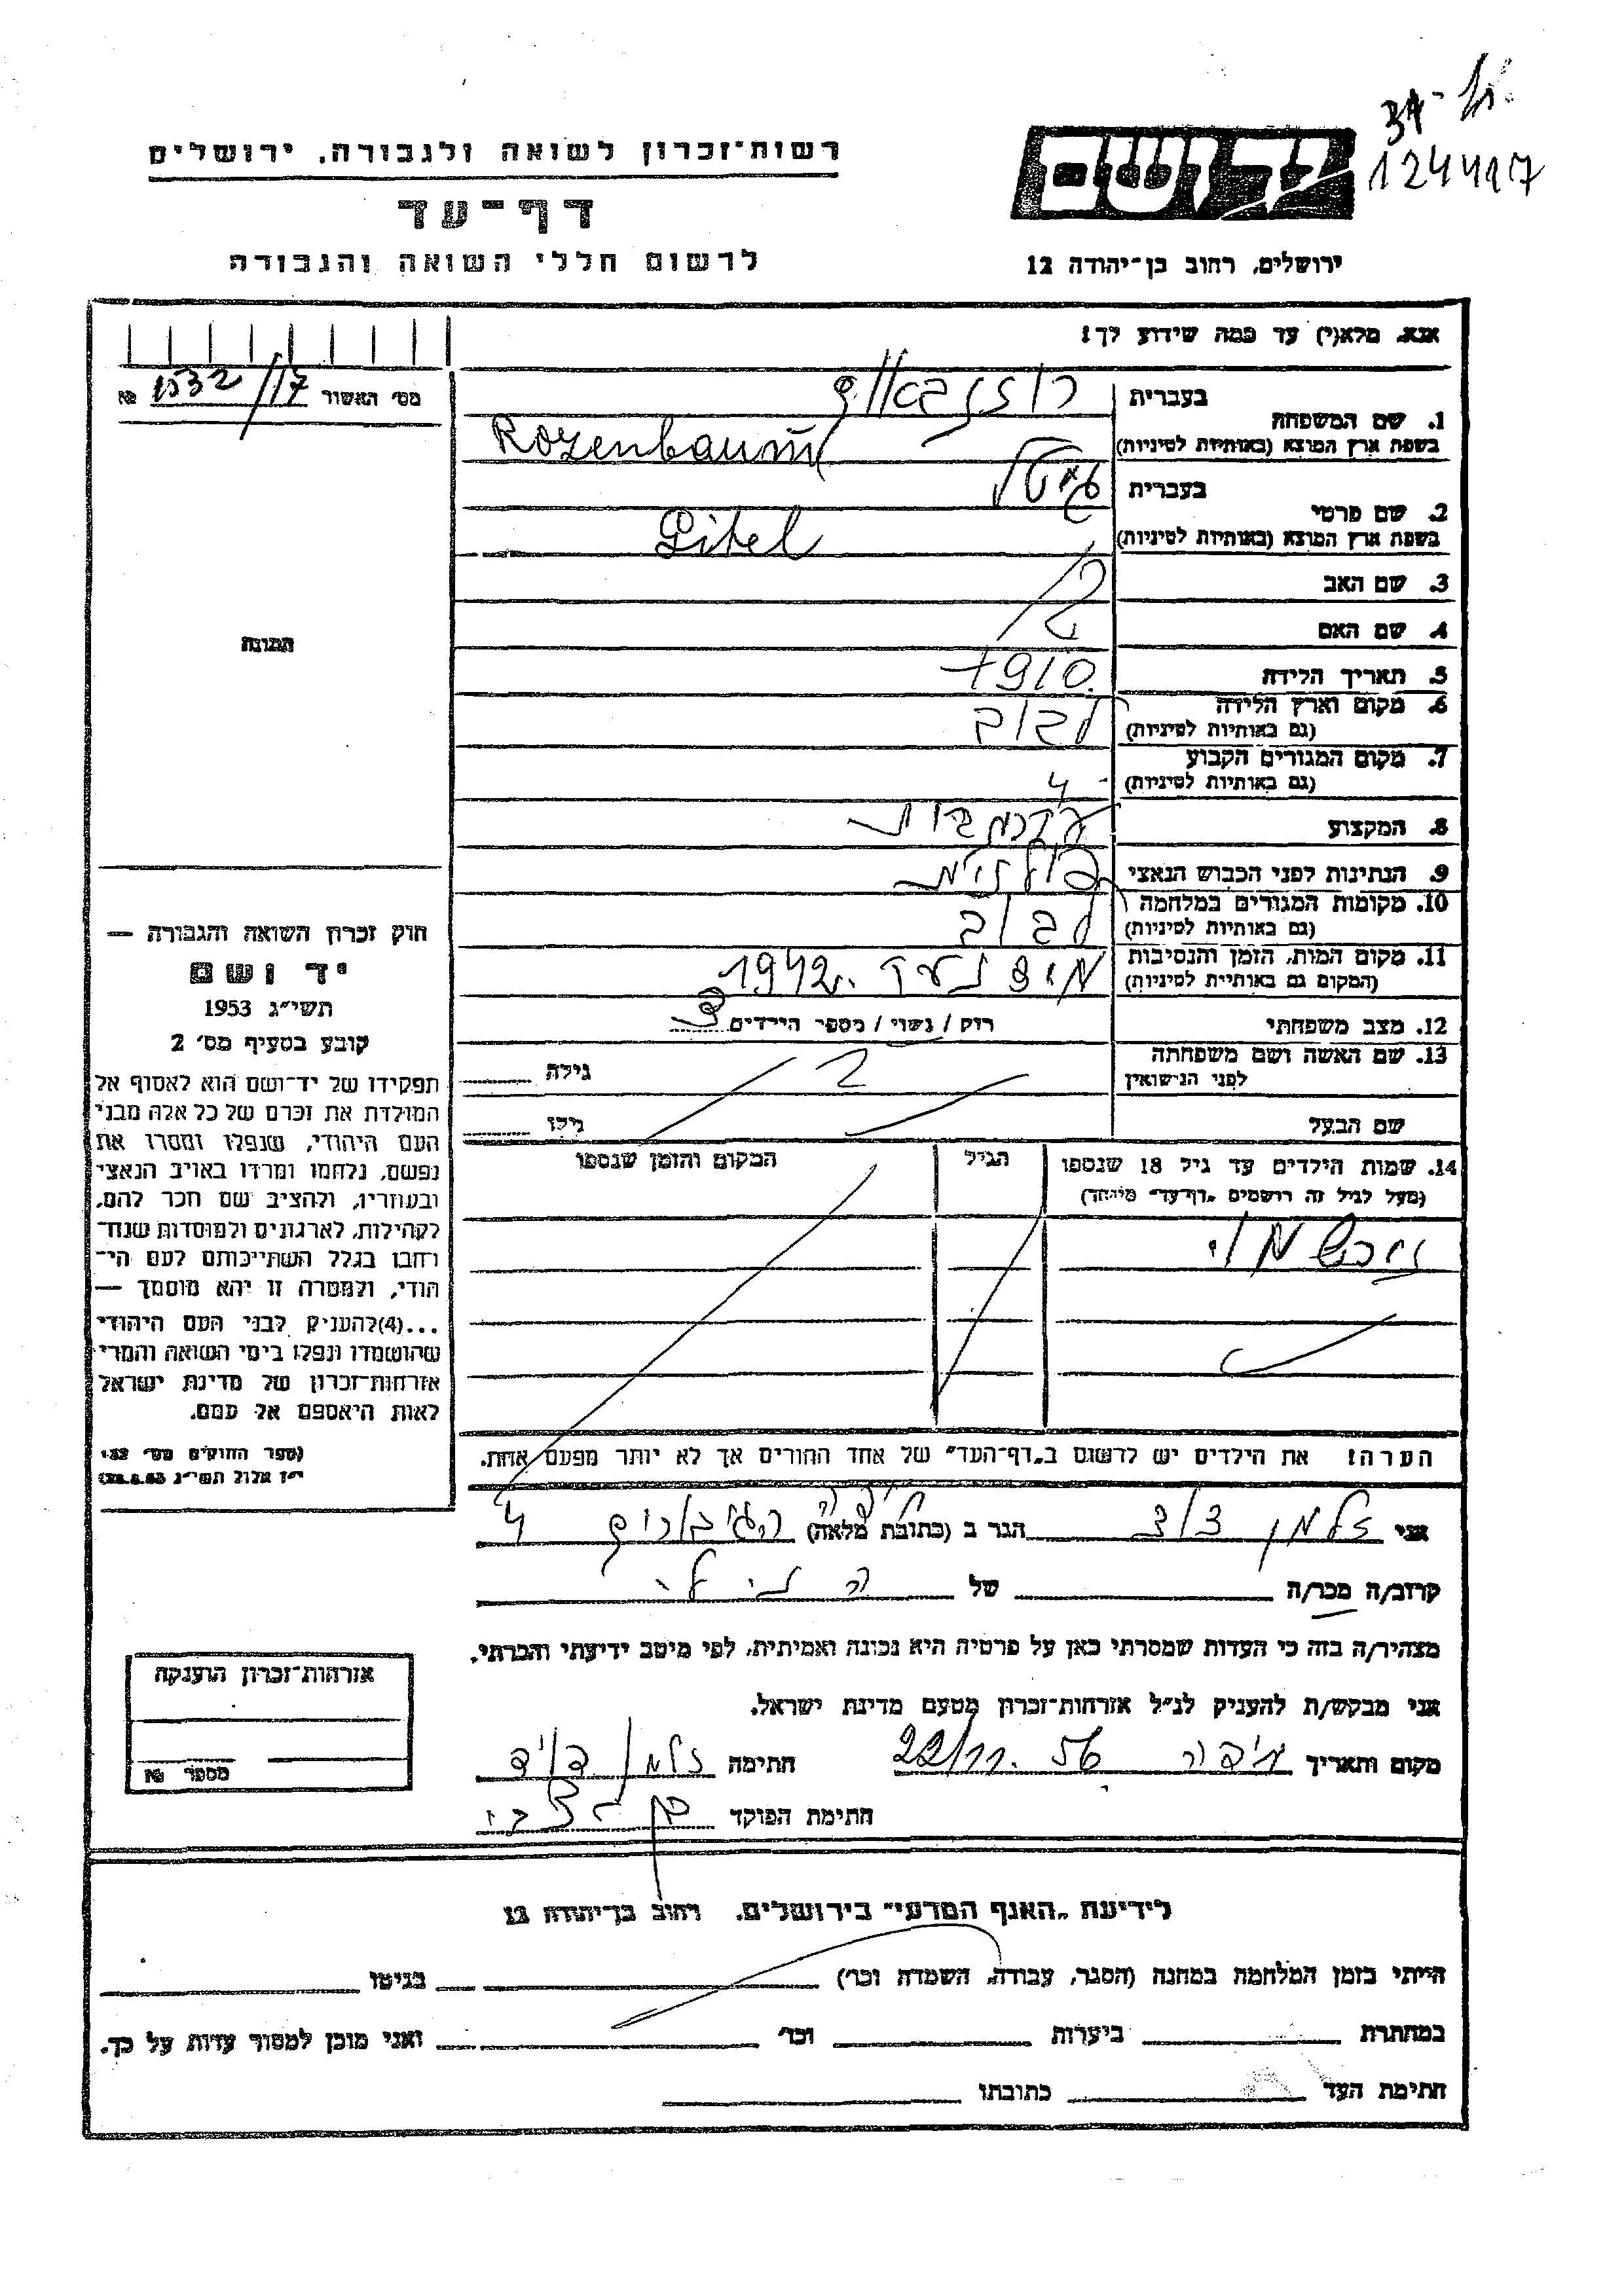 34-
124417
יד ושם
רשות־זכרון לשואה ולגבורה, ירושלים
דף־עד
ירושלים, רחוב בן־יהודה 12
לרשום חללי השואה והגבורה
אנא, מלא(י) עד כמה שידוע לך!
מס׳ האשור 1532/17 №
1. שם המשפחה בעברית רוזנבאום
בשפת ארץ המוצא (באותיות לטיניות) Rozenbaum
2. שם פרטי בעברית
בשפת ארץ המוצא (באותיות לטיניות) Gitel
3. שם האב
4. שם האם
5. תאריך הלידה 1910
6. מקום וארץ הלידה לבוב
(גם באותיות לטיניות)
7. מקום המגורים הקבוע
(גם באותיות לטיניות)
8. המקצוע עקרת בית
9. הנתינות לפני הכבוש הנאצי פולנית
10. מקומות המגורים במלחמה לבוב
(גם באותיות לטיניות)
11. מקום המות, הזמן והנסיבות 1942
(המקום גם באותיות לטיניות)
12. מצב משפחתי רוק / נשוי / מספר הילדים
13. שם האשה ושם משפחתה גילה
לפני הנישואין
שם הבעל גילו
14. שמות הילדים עד גיל 18 שנספו הגיל המקום והזמן שנספו
(מעל לגיל זה רושמים „דף־עד״ מיוחד)
הערה! את הילדים יש לרשום ב„דף־העד״ של אחד ההורים אך לא יותר מפעם אחת.
התמונה
חוק זכרון השואה והגבורה —
יד ושם
תשי״ג 1953
קובע בסעיף מס׳ 2
תפקידו של יד־ושם הוא לאסוף אל
המולדת את זכרם של כל אלה מבני
העם היהודי, שנפלו ומסרו את
נפשם, נלחמו ומרדו באויב הנאצי
ובעוזריו, ולהציב שם וזכר להם,
לקהילות, לארגונים ולמוסדות שנח־
רבו בגלל השתייכותם לעם הי־
הודי, ולמטרה זו יהא מוסמך —
...(4)להעניק לבני העם היהודי
שהושמדו ונפלו בימי השואה והמרי
אזרחות־זכרון של מדינת ישראל
לאות היאספם אל עמם.
(ספר החוקים מס׳ 132
י״ז אלול תשי״ג 28.8.53)
אני זלמן הגר ב (כתובת מלאה) חיפה הגיבורים 4
קרוב/ה מכר/ה של
מצהיר/ה בזה כי העדות שמסרתי כאן על פרטיה היא נכונה ואמיתית, לפי מיטב ידיעתי והכרתי.
אני מבקש/ת להעניק לנ״ל אזרחות־זכרון מטעם מדינת ישראל.
מקום ותאריך חיפה 22/11. 56 חתימה זלמן
חתימת הפוקד
אזרחות־זכרון הוענקה
מספר №
לידיעת „האגף המדעי״ בירושלים, רחוב בן־יהודה 12
הייתי בזמן המלחמה במחנה (הסגר, עבודה, השמדה וכו׳) בגיטו
במחתרת ביערות וכו׳ ואני מוכן למסור עדות על כך.
חתימת העד כתובתו